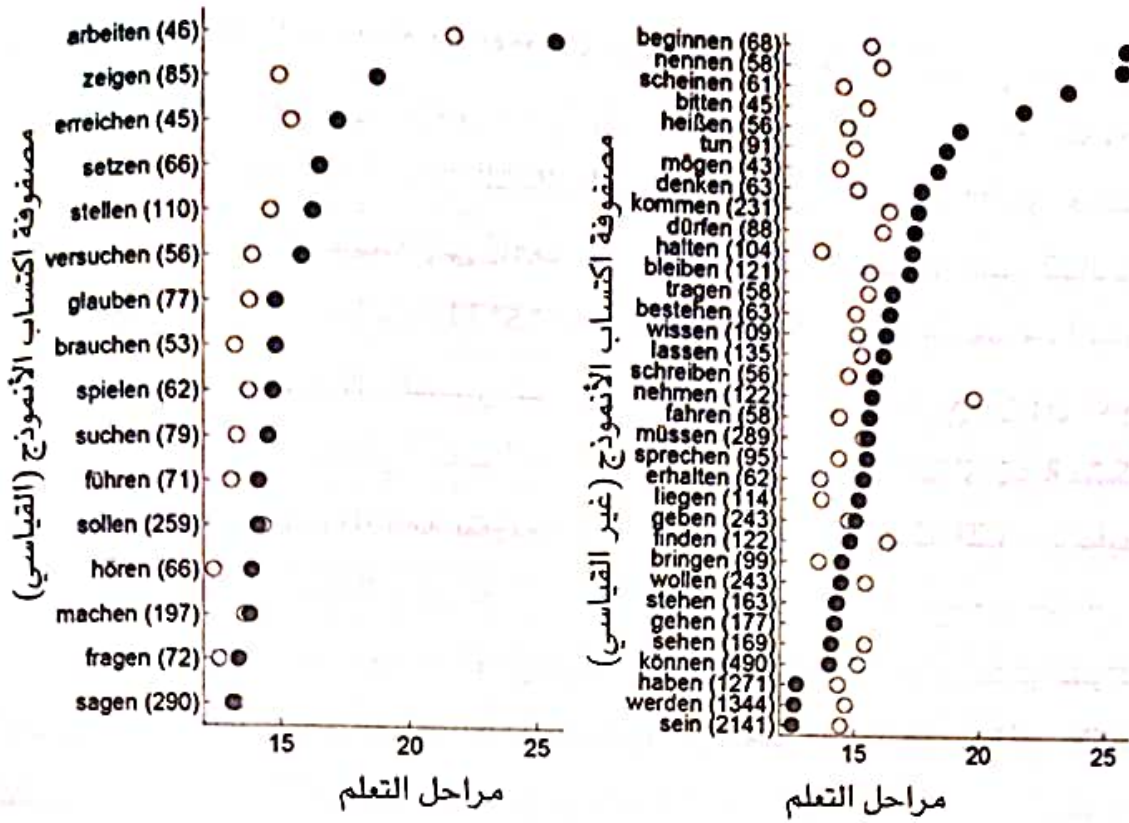 مصفوفة اكتساب الأنموذج (القياسي)
arbeiten (46)
zeigen (85)
erreichen (45)
setzen (66)
stellen (110)
versuchen (56)
glauben (77)
brauchen (53)
spielen (62)
suchen (79)
führen (71)
sollen (259)
hören (66)
machen (197)
fragen (72)
sagen (290)
15 20 25
مراحل التعلم
مصفوفة اكتساب الأنموذج (غير القياسي)
beginnen (68)
nennen (58)
scheinen (61)
bitten (45)
heißen (56)
tun (91)
mögen (43)
denken (63)
kommen (231)
dürfen (88)
halten (104)
bleiben (121)
tragen (58)
bestehen (63)
wissen (109)
lassen (135)
schreiben (56)
nehmen (122)
fahren (58)
müssen (289)
sprechen (95)
erhalten (62)
liegen (114)
geben (243)
finden (122)
bringen (99)
wollen (243)
stehen (163)
gehen (177)
sehen (169)
können (490)
haben (1271)
werden (1344)
sein (2141)
15 20 25
مراحل التعلم